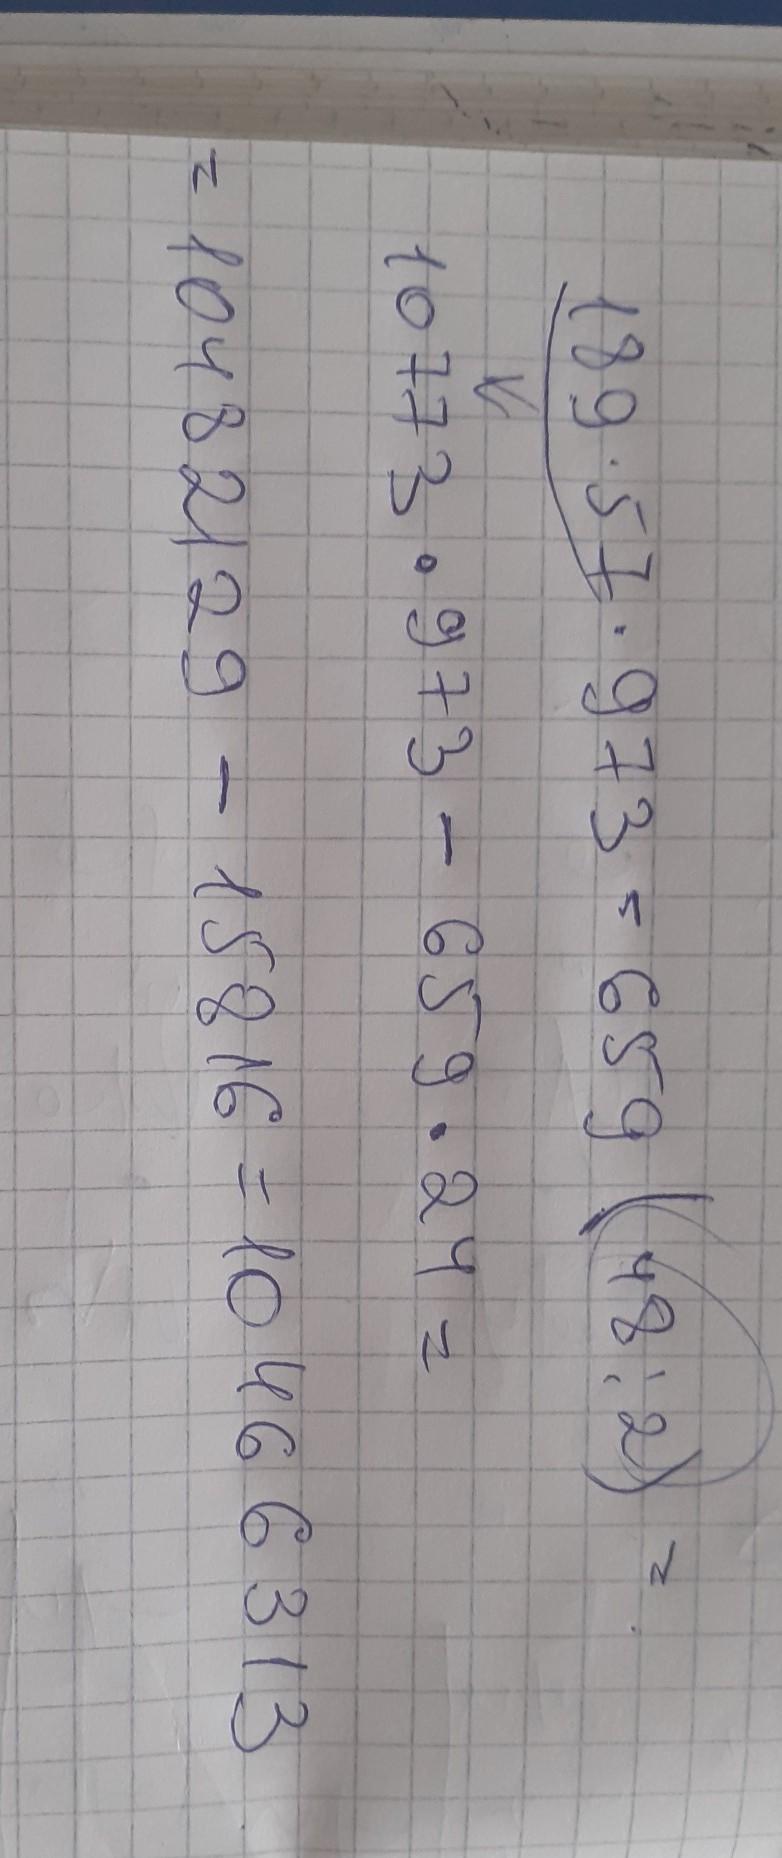 189·57·973 = 659 (48:2) =
10773·973 - 659·24 =
= 10482129 - 15816 = 10466313